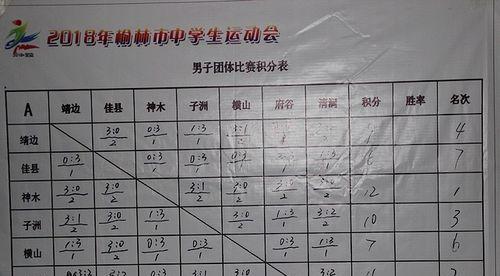 2018年榆林市中学生运动会
男子团体比赛积分表
A 靖边 佳县 神木 子洲 横山 府谷 清澜 积分 胜率 名次
靖边 3:0/2 0:3/1 1:3/1 3:1/2 4
佳县 0:3/1 0:3/1 0:3/1 0:3/1 1:3/1 6 7
神木 3:0/2 3:0/2 3:1/2 3:0/2 3:0/2 3:0/2 12 1
子洲 3:1/2 3:0/2 1:3/1 3:0/2 1:3/1 3:2/2 10 3
横山 1:3/1 3:0/2 0:3/1 0:3/1 0:3/1 1:3/1 7 6